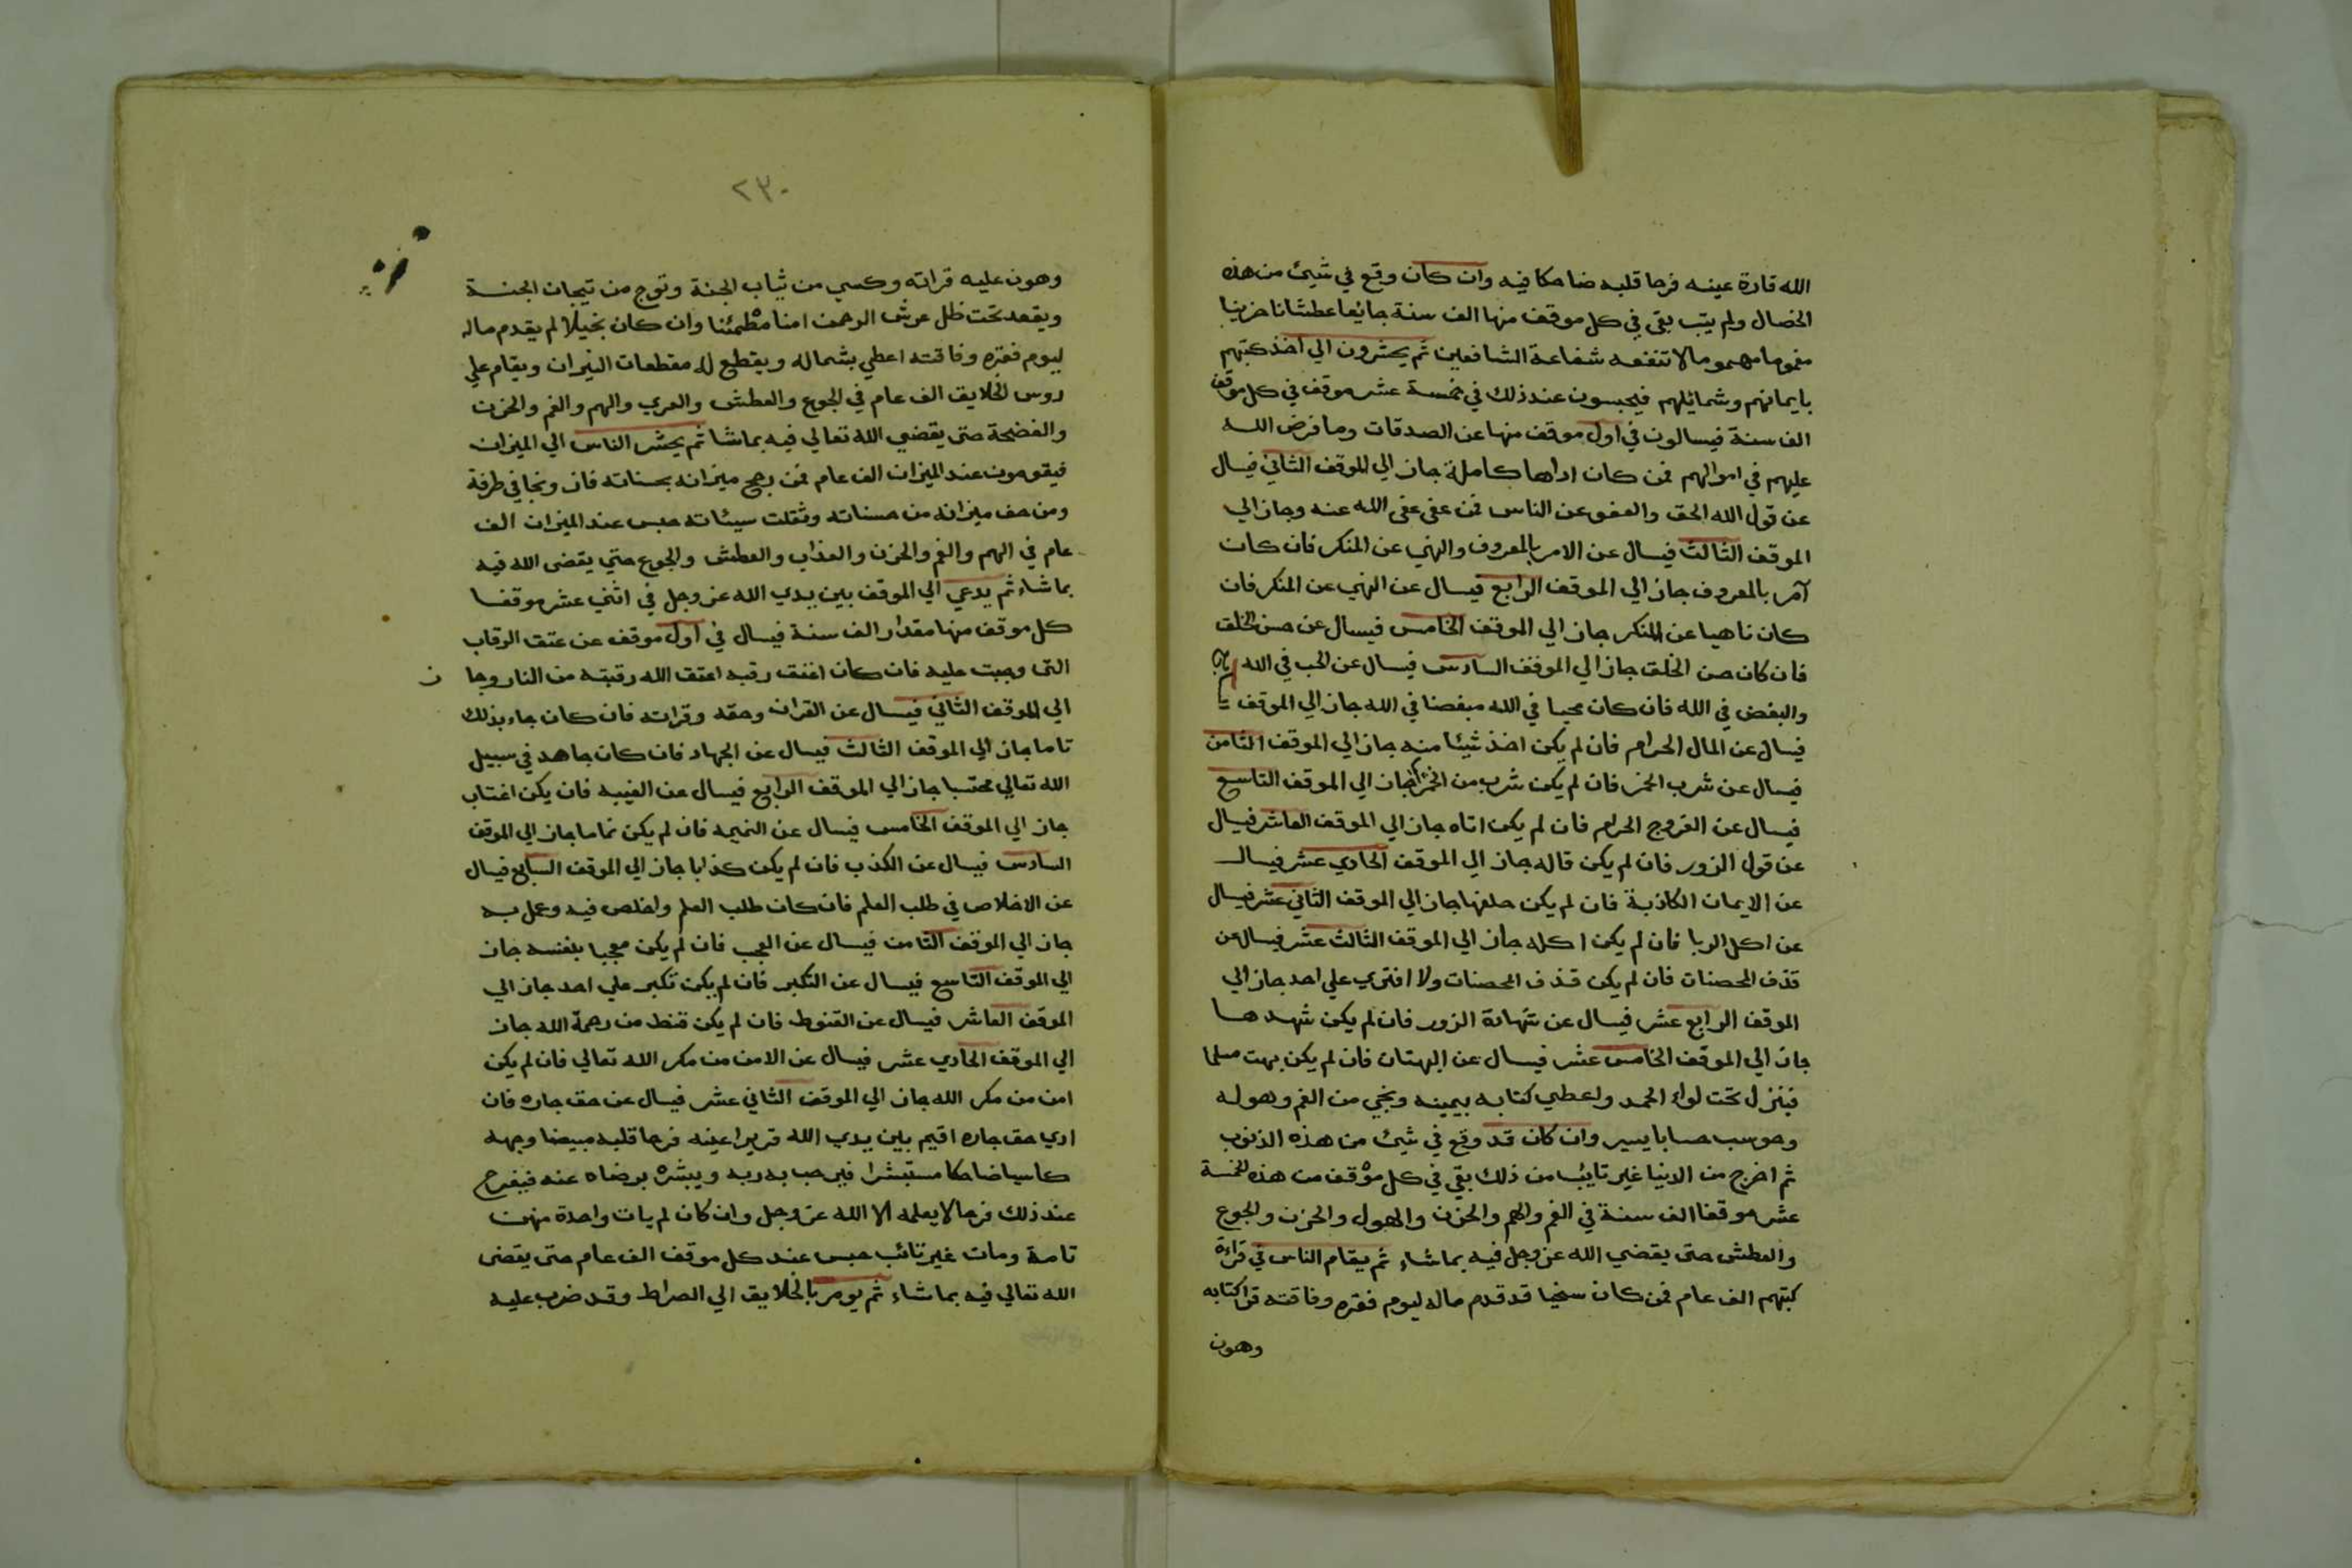 الله قارة عينه فرحا قلبه ضاحكا فيه وان كان وقع في شيئ من هذه
الخصال ولم يتب بقى في كل موقف منها الف سنة جائعا عطشانا حزينا
مغموما مهموما لا تنفعه شفاعة الشافعين ثم يحشرون الي اخذ كتبهم
بايمانهم وشمائلهم فيحبسون عند ذلك في خمسة عشر موقف في كل موقف
الف سنة فيسالون في اول موقف منها عن الصدقات وما فرض الله
عليهم في اموالهم فمن كان اداها كاملة جاز الي الموقف الثاني فيسال
عن قول الله الحق والعفو عن الناس فمن عفى عفى الله عنه وجاز الي
الموقف الثالث فيسال عن الامر بالمعروف والنهي عن المنكر فان كان
آمر بالمعروف جاز الي الموقف الرابع فيسال عن النهي عن المنكر فان
كان ناهيا عن المنكر جاز الي الموقف الخامس فيسال عن حسن الخلق
فان كان حسن الخلق جاز الي الموقف السادس فيسال عن الحب في الله
والبغض في الله فان كان محبا في الله مبغضا في الله جاز الي الموقف
فيسال عن المال الحرام فان لم يكن اخذ شيئا منه جاز الي الموقف الثامن
فيسال عن شرب الخمر فان لم يكن شرب من الخمر جاز الي الموقف التاسع
فيسال عن الفروج الحرام فان لم يكن اتاه جاز الي الموقف العاشر فيسال
عن قول الزور فان لم يكن قاله جاز الي الموقف الحادي عشر فيسال
عن الايمان الكاذبة فان لم يكن حلفها جاز الي الموقف الثاني عشر فيسال
عن اكل الربا فان لم يكن اكله جاز الي الموقف الثالث عشر فيسال عن
قذف المحصنات فان لم يكن قذف المحصنات ولا افترى علي احد جاز الي
الموقف الرابع عشر فيسال عن شهادة الزور فان لم يكن شهدها
جاز الي الموقف الخامس عشر فيسال عن البهتان فان لم يكن بهت مسلما
فينزل تحت لواء الحمد واعطي كتابه بيمينه ونجي من الغم وهوله
وحوسب حسابا يسير وان كان قد وقع في شيئ من هذه الذنوب
ثم اخرج من الدنيا غير تائب من ذلك بقي في كل موقف من هذه الخمسة
عشر موقفا الف سنة في الغم والهم والحزن والهول والحزن والجوع
والعطش حتى يقضي الله عز وجل فيه بما شاء ثم يقام الناس في قراءة
كتبهم الف عام فمن كان سخيا قد قدم ماله ليوم فقره وفاقته قرا كتابه
وهون
٢٣٠
وهون عليه قراته وكسي من ثياب الجنة وتوج من تيجان الجنة
ويقعد تحت ظل عرش الرحمن امنا مطمئنا وان كان بخيلا لم يقدم ماله
ليوم فقره وفاقته اعطي بشماله ويقطع له مقطعات النيران ويقام علي
روس الخلايق الف عام في الجوع والعطش والعري والهم والغم والحزن
والفضحة حتى يقضي الله تعالي فيه بما شا ثم يحشر الناس الي الميزان
فيقومون عند الميزان الف عام فمن رجح ميزانه بحسناته فاز ونجا في طرفة
ومن خف ميزانه من حسناته وثقلت سيئاته حبس عند الميزان الف
عام في الهم والغم والحزن والعذاب والعطش والجوع حتي يقضى الله فيه
بما شاء ثم يدعي الي الموقف بين يدي الله عز وجل في اثني عشر موقفا
كل موقف منها مقدار الف سنة فيسال في اول موقف عن عتق الرقاب
التى وجبت عليه فان كان اعتق رقبه اعتق الله رقبته من النار وجا ز
الي الموقف الثاني فيسال عن القران وحقه وقراته فان كان جاء بذلك
تاما جاز الي الموقف الثالث فيسال عن الجهاد فان كان جاهد في سبيل
الله تعالي محتسبا جاز الي الموقف الرابع فيسال عن الغيبه فان يكن اغتاب
جاز الي الموقف الخامس فيسال عن النميمه فان لم يكن نماما جاز الي الموقف
السادس فيسال عن الكذب فان لم يكن كذابا جاز الي الموقف السابع فيسال
عن الاخلاص في طلب العلم فان كان طلب العلم واخلص فيه وعمل به
جاز الي الموقف الثامن فيسال عن العجب فان لم يكن معجبا بنفسه جاز
الي الموقف التاسع فيسال عن التكبر فان لم يكن تكبر علي احد جاز الي
الموقف العاشر فيسال عن القنوط فان لم يكن قنط من رحمة الله جاز
الي الموقف الحادي عشر فيسال عن الامن من مكر الله تعالي فان لم يكن
امن من مكر الله جاز الي الموقف الثاني عشر فيسال عن حق جاره فان
ادي حق جاره اقيم بين يدي الله قريرا عينه فرحا قلبه مبيضا وجهه
كاسيا ضاحكا مستبشرا فيرحب به ربه ويبشره برضاه عنه فيفرح
عند ذلك فرحا لا يعلمه الا الله عز وجل وان كان لم يات واحدة منهن
تامة ومات غير تائب حبس عند كل موقف الف عام حتى يقضى
الله تعالي فيه بما شاء ثم يومر بالخلايق الي الصراط وقد ضرب عليه